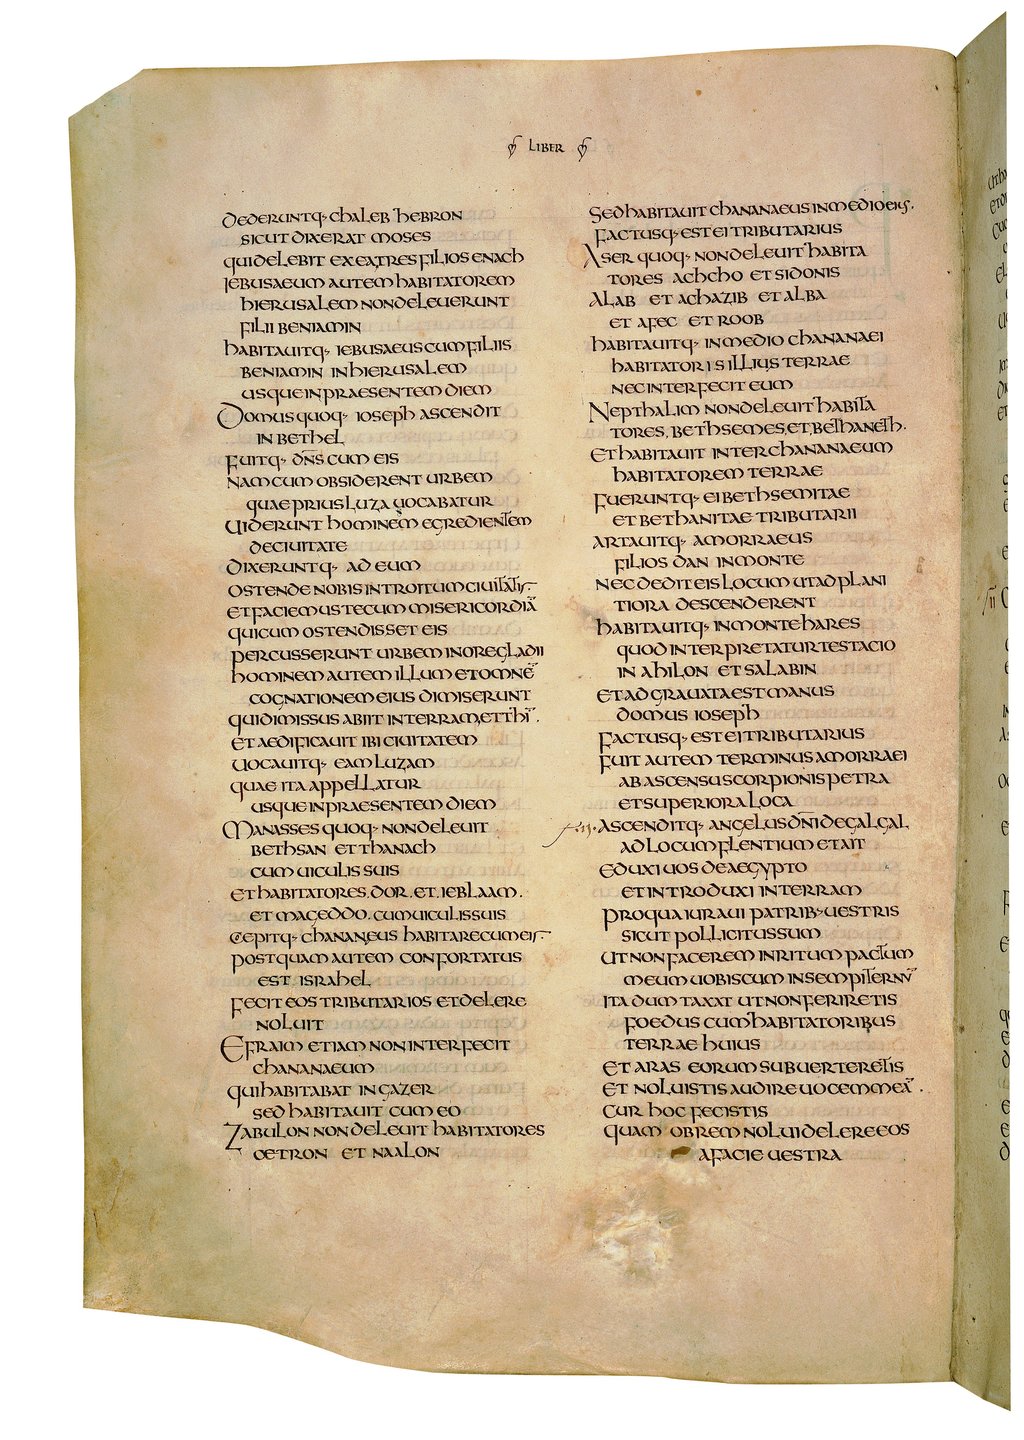 LIBER
dederuntq· chaleb hebron
sicut dixerat moses
qui delebit ex ea tres filios enach
iebusaeum autem habitatorem
hierusalem non deleuerunt
filii beniamin
habitauitq· iebusaeus cum filiis
beniamin in hierusalem
usque in praesentem diem
Domus quoq· ioseph ascendit
in bethel
fuitq· dn̄s cum eis
nam cum obsiderent urbem
quae prius luza uocabatur
uiderunt hominem egredientem
de ciuitate
dixeruntq· ad eum
ostende nobis introitum ciuitatis
et faciemus tecum misericordiā
qui cum ostendisset eis
percusserunt urbem in ore gladii
hominem autem illum et omnē
cognationem eius dimiserunt
qui dimissus abiit in terram, etthī·
et aedificauit ibi ciuitatem
uocauitq· eam luzam
quae ita appellatur
usque in praesentem diem
Manasses quoq· non deleuit
bethsan et thanach
cum uiculis suis
et habitatores. dor. et. ieblaam.
et mageddo. cum uiculis suis
cepitq· chananeus habitare cum eis
postquam autem confortatus
est israhel
fecit eos tributarios et delere
noluit
Efraim etiam non interfecit
chananaeum
qui habitabat in gazer
sed habitauit cum eo
Zabulon non deleuit habitatores
cetron et naalon
sed habitauit chananaeus in medio eius·
factusq· est ei tributarius
Aser quoq· non deleuit habita
tores achcho et sidonis
alab et achazib et alba
et afec et roob
habitauitq· in medio chananaei
habitatoris illius terrae
nec interfecit eum
Nepthalim non deleuit habita
tores. bethsemes. et. bethaneth.
et habitauit inter chananaeum
habitatorem terrae
fueruntq· ei bethsemitae
et bethanitae tributarii
artauitq· amorraeus
filios dan in monte
nec dedit eis locum ut ad plani
tiora descenderent
habitauitq· in monte hares
quod interpretatur testacio
in ahilon et salabin
et adgrauata est manus
domus ioseph
factusq· est ei tributarius
fuit autem terminus amorraei
ab ascensu scorpionis petra
et superiora loca
ascenditq· angelus dn̄i de galgal
ad locum flentium et ait
eduxi uos de aegypto
et introduxi in terram
pro qua iuraui patrib· uestris
sicut pollicitus sum
ut non facerem inritum pactum
meum uobiscum in sempiternū
ita dumtaxat ut non feriretis
foedus cum habitatoribus
terrae huius
et aras eorum subuerteretis
et noluistis audire uocem meā·
cur hoc fecistis
quam obrem nolui delere eos
a facie uestra